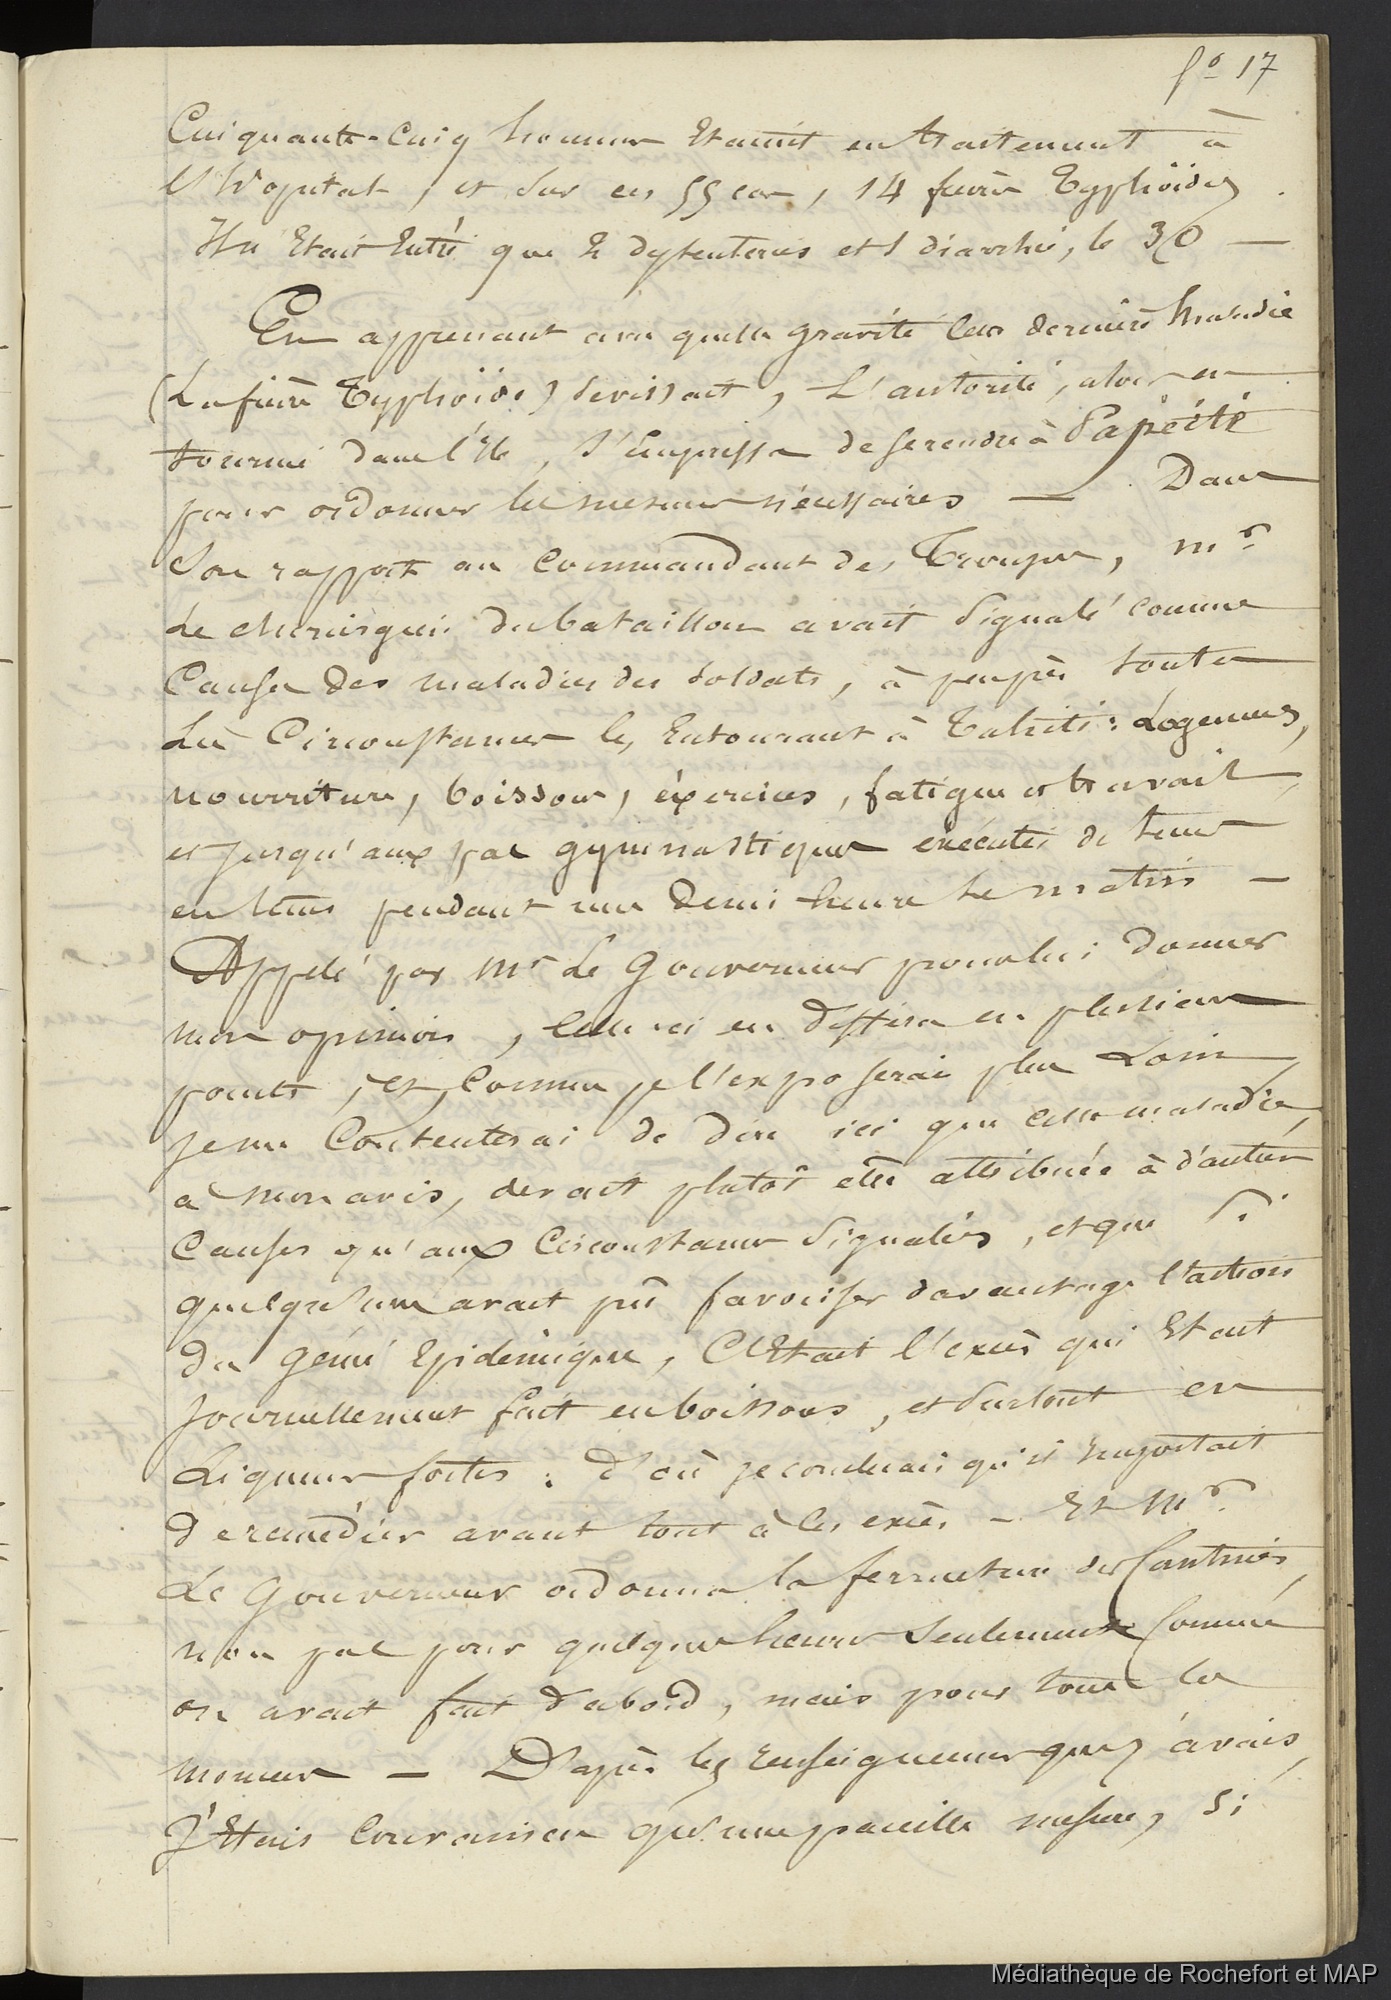 fo 17
Cinquante-Cinq hommes Etaient en traitement à
l'hopital, et sur ces 55 cas, 14 fièvres Typhoïdes
Il n'Etait Entré que 2 dysenteries et 1 diarrhé, le 30 —
En apprenant avec quelle gravité cette dernière Maladie
(La fièvre Typhoïde) sévissait, L'autorité, alors en
tournée dans l'Ile, s'Empressa de se rendre à Papéïté
pour ordonner les mesures nécessaires — Dans
son rapport au Commandant des Troupes, Mr
Le chirurgien du bataillon avait signalé comme
Causes des maladies des soldats, à peuprès toutes
Les Circonstances les Entourant à Tahiti : Logemens,
nourriture, boissons, éxercices, fatigues et travail,
et jusqu'aux pas gymnastiques exécutés de tems
en tems pendant une demi-heure Le matin —
Appelé par Mr Le Gouverneur pour lui donner
mon opinion, celle-ci en différa en plusieurs
points, et, comme je l'exposerai plus Loin,
je me Contenterai de dire ici que cette maladie,
à mon avis, devait plutôt être attribuée à d'autres
Causes qu'aux Circonstances signalées, et que si
quelqu'une avait pû favoriser davantage l'action
du génie Epidémique, C'Etait l'excès qui Etait
Journellement fait en boissons, et surtout en
Liqueurs fortes : d'où je concluais qu'il Importait
de remédier avant tout à ces excès — Et Mr
Le Gouverneur ordonna la fermeture des Cantines,
non pas pour quelques heures seulement Comme
on avait fait d'abord, mais pour tous les
momens — D'après les renseignemens que j'avais,
J'Etais Convaincu qu'une pareille mesure, si
Médiathèque de Rochefort et MAP